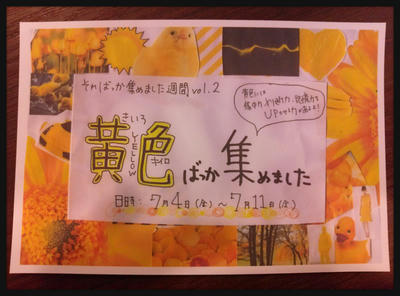 そればっか集めました週間 vol.2
黄色には
集中力、判断力、記憶力を
UPさせる力があるよ!
きいろ
YELLOW
キイロ
黄色ばっか集めました
日時: 7月4日(金)～7月11日(金)